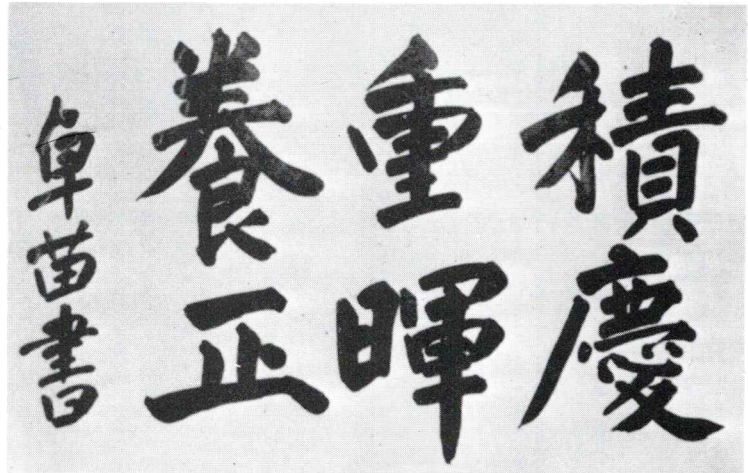 積慶
重暉
養正
卓苗書